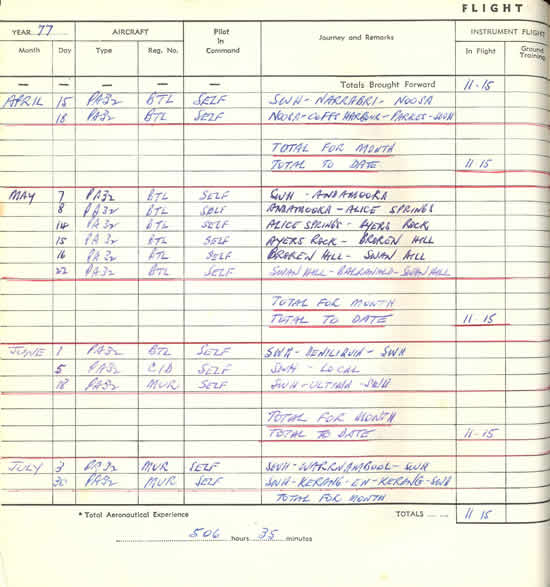 FLIGHT
YEAR 77 AIRCRAFT Pilot In Command Journey and Remarks INSTRUMENT FLIGHT
Month Day Type Reg. No. In Flight Ground Training
— — — — — Totals Brought Forward 11-15
APRIL 15 PA32 BTL SELF SWH - NARRABRI - NOOSA
18 PA32 BTL SELF NOOSA - COFFS HARBOUR - PARKES - SWH
TOTAL FOR MONTH
TOTAL TO DATE 11 15
MAY 7 PA32 BTL SELF SWH - ANDAMOOKA
8 PA32 BTL SELF ANDAMOOKA - ALICE SPRINGS
14 PA32 BTL SELF ALICE SPRINGS - AYERS ROCK
15 PA32 BTL SELF AYERS ROCK - BROKEN HILL
16 PA32 BTL SELF BROKEN HILL - SWAN HILL
22 PA32 BTL SELF SWAN HILL - BALRANALD - SWAN HILL
TOTAL FOR MONTH
TOTAL TO DATE 11-15
JUNE 1 PA32 BTL SELF SWH - DENILIQUIN - SWH
5 PA32 SELF SWH - LOCAL
18 PA32 MUR SELF SWH - ULTIMA - SWH
TOTAL FOR MONTH
TOTAL TO DATE 11-15
JULY 3 PA32 MUR SELF SWH - WARRNAMBOOL - SWH
30 PA32 MUR SELF SWH - KERANG - EN - KERANG - SWH
TOTAL FOR MONTH
* Total Aeronautical Experience TOTALS .... .... 11 15
506 hours 35 minutes